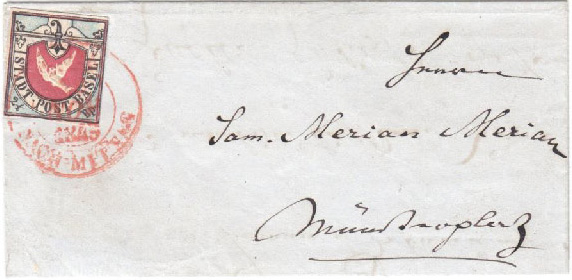 STADT·POST·BASEL
2½ Rp.
1845
NACH-MITTAG
Herrn
Sam. Merian Merian
Münsterplatz